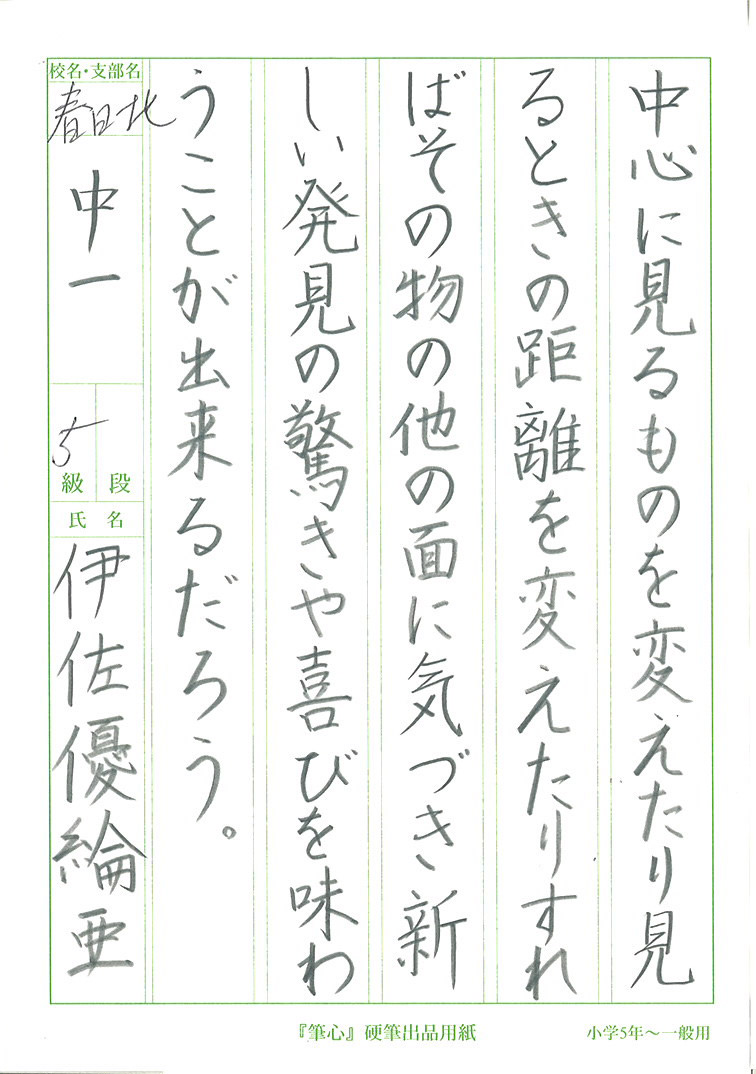 中心に見るものを変えたり見
るときの距離を変えたりすれ
ばその物の他の面に気づき新
しい発見の驚きや喜びを味わ
うことが出来るだろう。
校名・支部名
春日北
中一
5
級 段
氏名
伊佐優綸亜
『筆心』硬筆出品用紙
小学5年〜一般用